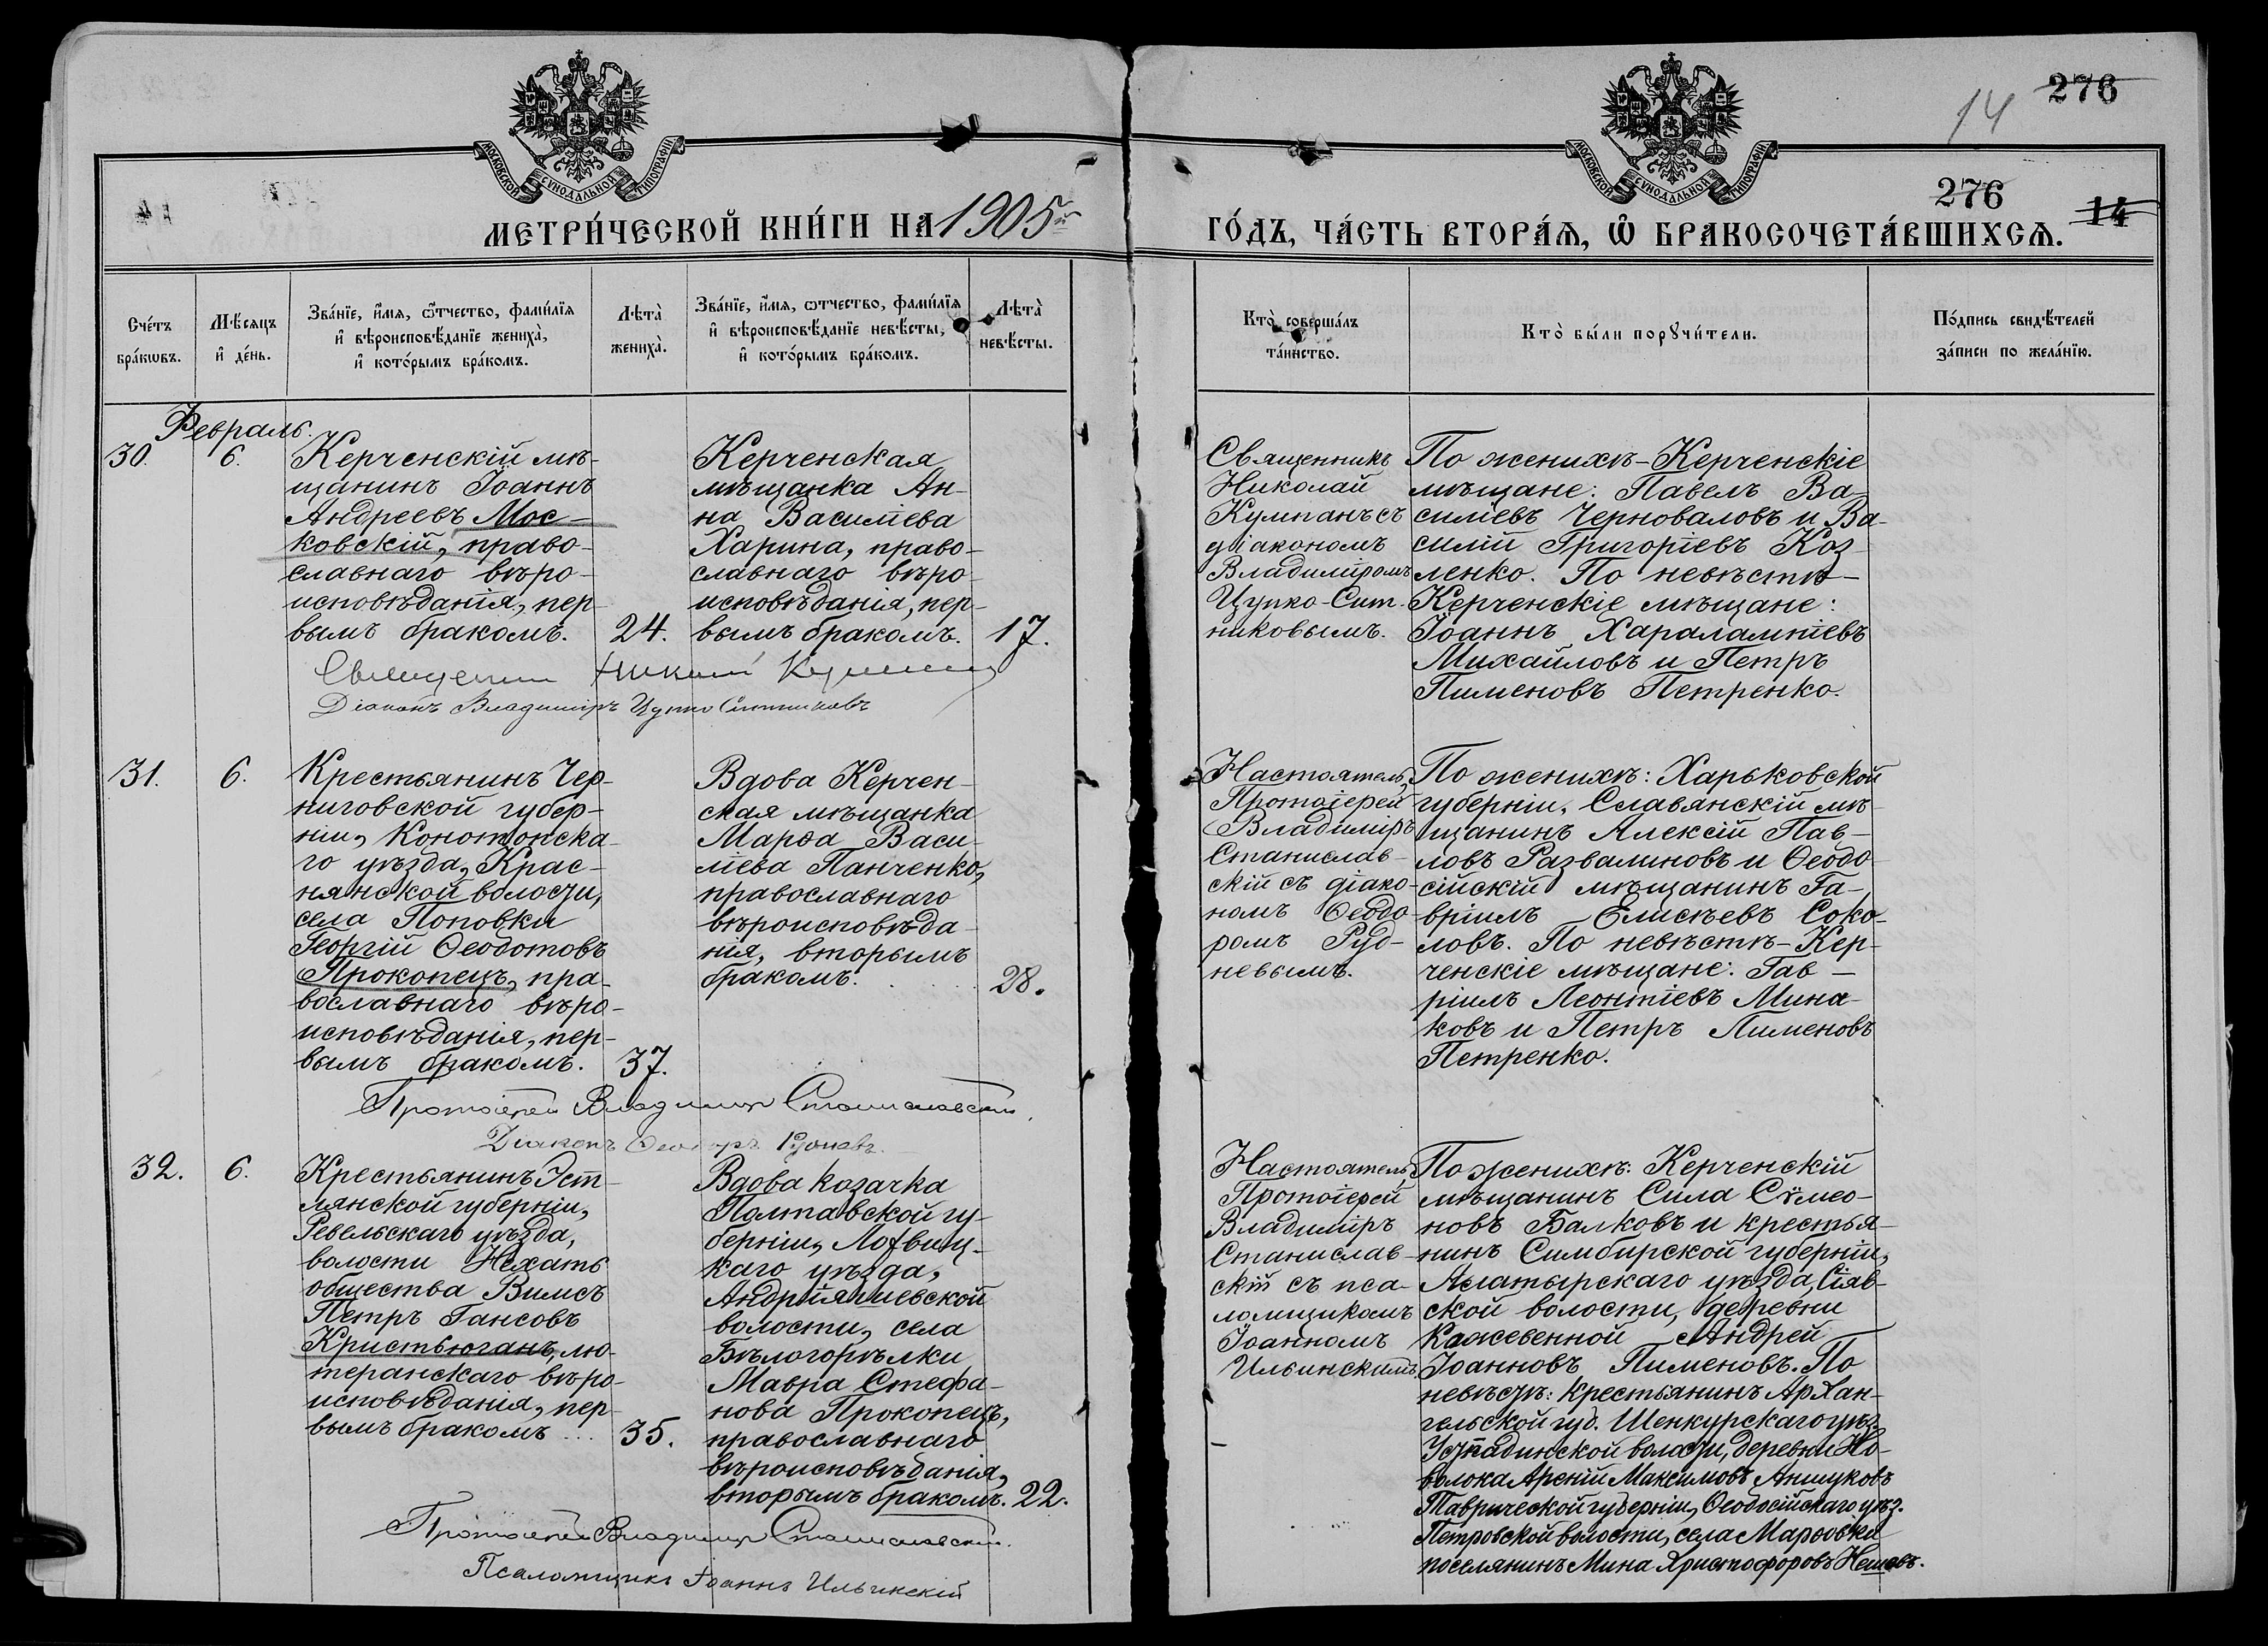 276
14
МОСКОВСКОЙ СУНОДАЛЬНОЙ ТИПОГРАФІИ
МОСКОВСКОЙ СУНОДАЛЬНОЙ ТИПОГРАФІИ
276
14
МЕТРИ́ЧЕСКОЙ КНИ́ГИ НА 1905й
ГО́ДЪ, ЧА́СТЬ ВТОРА́Я, Ѡ БРАКОСОЧЕТА́ВШИХСЯ.
Сче́тъ
бра́кѡвъ.
Мѣ́сяцъ
и҆ де́нь.
Зва́нїе, и҆́мя, ѻ҆́тчество, фами́лїя
и҆ вѣроисповѣ́данїе жениха̀,
и҆ кото́рымъ бра́комъ.
Лѣта̀
жениха̀.
Зва́нїе, и҆́мя, ѻ҆тчество, фами́лїя
и҆ вѣроисповѣ́данїе невѣ́сты,
и҆ кото́рымъ бра́комъ.
Лѣта̀
невѣ́сты.
Кто̀ соверша́лъ
та́инство.
Кто̀ бы́ли порꙋчи́тели.
По́дпись свидѣ́телей
за́писи по жела́нїю.
Февраль.
30.
6.
Керченскій мѣ-
щанинъ Іоаннъ
Андреевъ Мос-
ковскій, право-
славнаго вѣро-
исповѣданія, пер-
вымъ бракомъ.
24.
Керченская
мѣщанка Ан-
на Василіева
Харина, право-
славнаго вѣро-
исповѣданія, пер-
вымъ бракомъ.
17.
Священникъ
Николай
Кумпанъ съ
діакономъ
Владиміромъ
Цупко-Сит-
никовымъ.
По женихѣ-Керченскіе
мѣщане: Павелъ Ва-
силіевъ Черноваловъ и Ва-
силій Григоріевъ Коз-
ленко. По невѣстѣ-
Керченскіе мѣщане:
Іоаннъ Харалампіевъ
Михайловъ и Петръ
Пименовъ Петренко.
Священникъ Николай Кумпанъ
Діаконъ Владиміръ Цупко Ситниковъ
31.
6.
Крестьянинъ Чер-
ниговской губер-
ніи, Конотопска-
го уѣзда, Крас-
нянской волости,
села Поповки
Георгій Ѳеодотовъ
Прокопецъ, пра-
вославнаго вѣро-
исповѣданія, пер-
вымъ бракомъ.
37.
Вдова Керчен-
ская мѣщанка
Марѳа Васи-
ліева Панченко,
православнаго
вѣроисповѣда-
нія, вторымъ
бракомъ.
28.
Настоятель,
Протоіерей
Владиміръ
Станислав-
скій съ діако-
номъ Ѳеодо-
ромъ Руд-
невымъ.
По женихѣ: Харьковской
губерніи, Славянскій мѣ-
щанинъ Алексій Пав-
ловъ Развалиновъ и Ѳеодо-
сійскій мѣщанинъ Га-
вріилъ Елисѣевъ Соко-
ловъ. По невѣстѣ-Кер-
ченскіе мѣщане: Гав-
ріилъ Леонтіевъ Мина-
ковъ и Петръ Пименовъ
Петренко.
Протоіерей Владиміръ Станиславскій.
Діаконъ Ѳеодоръ Рудневъ.
32.
6.
Крестьянинъ Эст-
лянской губерніи,
Ревельскаго уѣзда,
волости Нехать
общества Вимсъ
Петръ Гансовъ
Кристьюганъ, лю-
теранскаго вѣро-
исповѣданія, пер-
вымъ бракомъ...
35.
Вдова козачка
Полтавской гу-
берніи, Лохвиц-
каго уѣзда,
Андріяшевской
волости, села
Бѣлогорѣлки
Мавра Стефа-
нова Прокопецъ,
православнаго
вѣроисповѣданія,
вторымъ бракомъ.
22.
Настоятель,
Протоіерей
Владиміръ
Станислав-
скій съ пса-
ломщикомъ
Іоанномъ
Ильинскимъ.
По женихѣ: Керченскій
мѣщанинъ Сила Сѵмео-
новъ Балковъ и крестья-
нинъ Симбирской губерніи,
Алатырскаго уѣзда, Сіяв-
ской волости, деревни
Кожевенной Андрей
Іоанновъ Пименовъ. По
невѣстѣ: крестьянинъ Архан-
гельской губ. Шенкурскаго уѣз.
Устпадинской волости, деревни Но-
волока Арсеній Максимовъ Аншуковъ
Таврической губерніи, Ѳеодосійскаго уѣз.
Петровской волости, села Марѳовки
поселянинъ Мина Христофоровъ Нешевъ.
Протоіерей Владиміръ Станиславскій.
Псаломщикъ Іоаннъ Ильинскій